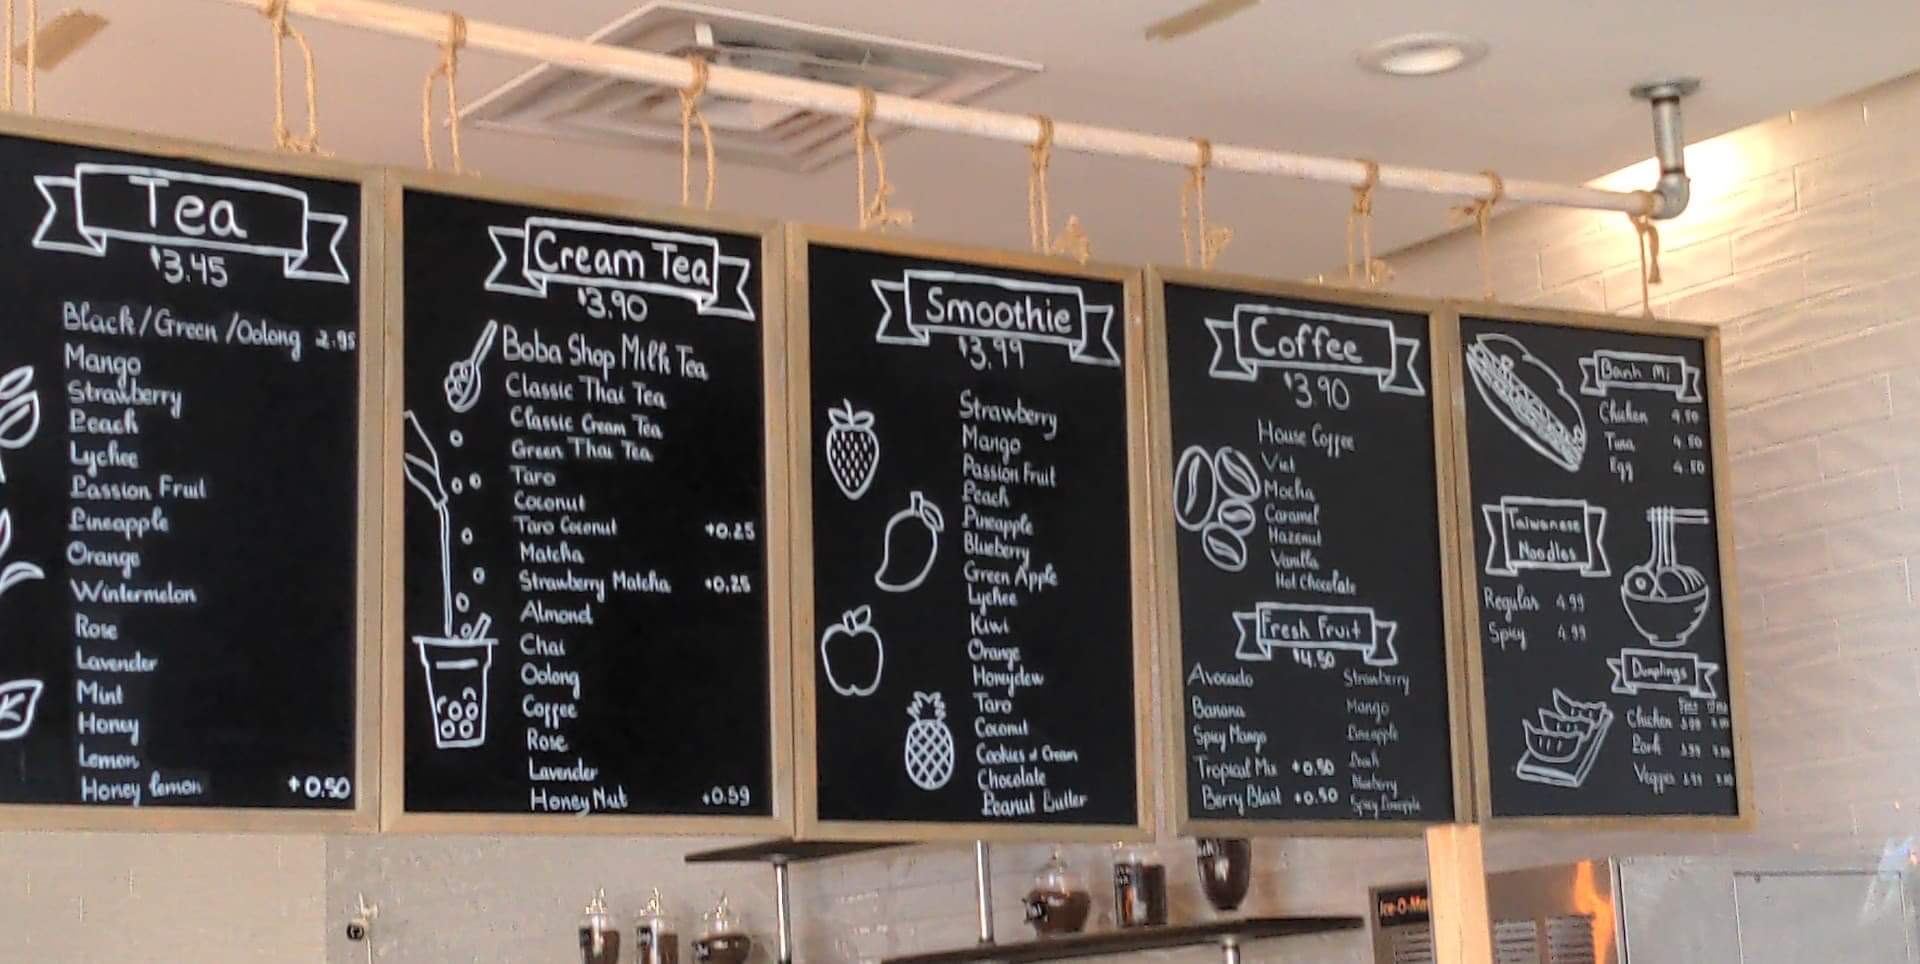 Tea
$3.45
Black/Green/Oolong 2.95
Mango
Strawberry
Peach
Lychee
Passion Fruit
Pineapple
Orange
Wintermelon
Rose
Lavender
Mint
Honey
Lemon
Honey lemon +0.50
Cream Tea
$3.90
Boba Shop Milk Tea
Classic Thai Tea
Classic Cream Tea
Green Thai Tea
Taro
Coconut
Taro Coconut +0.25
Matcha
Strawberry Matcha +0.25
Almond
Chai
Oolong
Coffee
Rose
Lavender
Honey Nut +0.59
Smoothie
$3.99
Strawberry
Mango
Passion Fruit
Peach
Pineapple
Blueberry
Green Apple
Lychee
Kiwi
Orange
Honeydew
Taro
Coconut
Cookies & Cream
Chocolate
Peanut Butter
Coffee
$3.90
House Coffee
Viet
Mocha
Caramel
Hazenut
Vanilla
Hot Chocolate
Fresh Fruit
$4.50
Avocado
Banana
Spicy Mango
Tropical Mix +0.50
Berry Blast +0.50
Strawberry
Mango
Pineapple
Peach
Blueberry
Spicy Pineapple
Banh Mi
Chicken 4.50
Tuna 4.50
Egg 4.50
Taiwanese
Noodles
Regular 4.99
Spicy 4.99
Dumplings
Chicken
Pork
Veggie